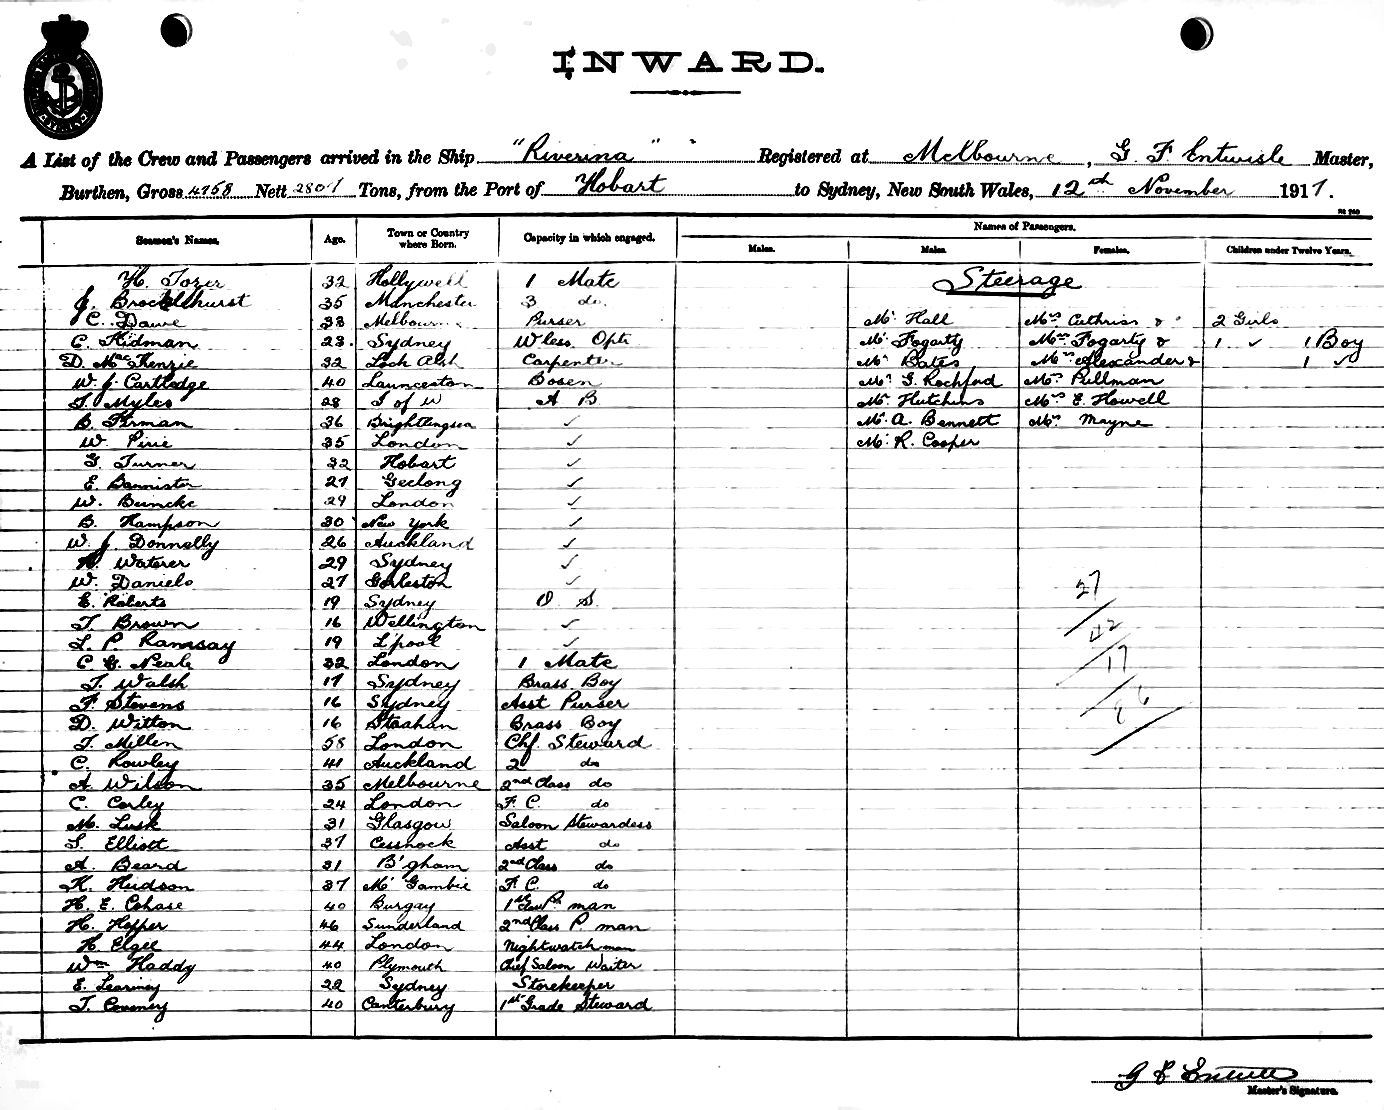 INWARD.
A List of the Crew and Passengers arrived in the Ship "Riverina" Registered at Melbourne, G. F Entwisle Master,
Burthen, Gross 4758 Nett 2801 Tons, from the Port of Hobart to Sydney, New South Wales, 12th November 1917.
Seamen's Names. Age. Town or Country where Born. Capacity in which engaged. Names of Passengers.
Males. Males. Females. Children under Twelve Years.
H. Tozer 32 Hollywell 1 Mate Steerage
J. Brocklehurst 35 Manchester 3 do.
C. Dawe 33 Melbourne Purser Mr Hall Mrs & 2 Girls
C. Hidman 23 Sydney W'less Optr Mr Fogarty Mrs Fogarty & 1 ✓ 1 Boy
D. MacKenzie 32 Loch Alsh Carpenter Mr Bates Mrs Alexander & 1 ✓
W. J. Cartledge 40 Launceston Bosen Mr G. Rochford Mrs Pullman
T. Myles 28 I of W A B Mr Hutchins Mrs E. Howell
B. Firman 36 Brightlingsea ✓ Mr A. Bennett Mrs Mayne
W. Pirie 35 London ✓ Mr R. Cooper
G. Turner 32 Hobart ✓
E. Bannister 27 Geelong ✓
W. Buncke 29 London ✓
B. Hampson 30 New York ✓
W. J. Donnelly 26 Auckland ✓
Waterer 29 Sydney ✓
W. Daniels 27 Gorleston ✓
E. Roberts 19 Sydney O S.
T. Brown 16 Wellington ✓
L. P. Ramsay 19 L'pool ✓
C G. Neale 32 London 1 Mate
T. Walsh 17 Sydney Brass Boy
F. Stevens 16 Sydney Asst Purser
D. Witton 16 Strahan Brass Boy
T. Millen 58 London Chf. Steward
C. Rowley 41 Auckland 2 do
A. Wilson 35 Melbourne 2nd Class do
C. Corley 24 London F. C. do
M. Lusk 31 Glasgow Saloon Stewardess
S. Elliott 37 Cessnock Asst do
A. Beard 31 B'gham 2nd Class do
K. Hudson 37 Mt Gambie F. C. do
H. E. Cohase 40 Bungay 1st P. man
H. Hopper 46 Sunderland 2nd Class P. man
H. Elgee 44 London Nightwatchman
Wm Haddy 40 Plymouth Chief Saloon Waiter
E. 22 Sydney Storekeeper
T. 40 Canterbury 1st Grade Steward
27
42
17
86
G F Entwisle
Master's Signature.